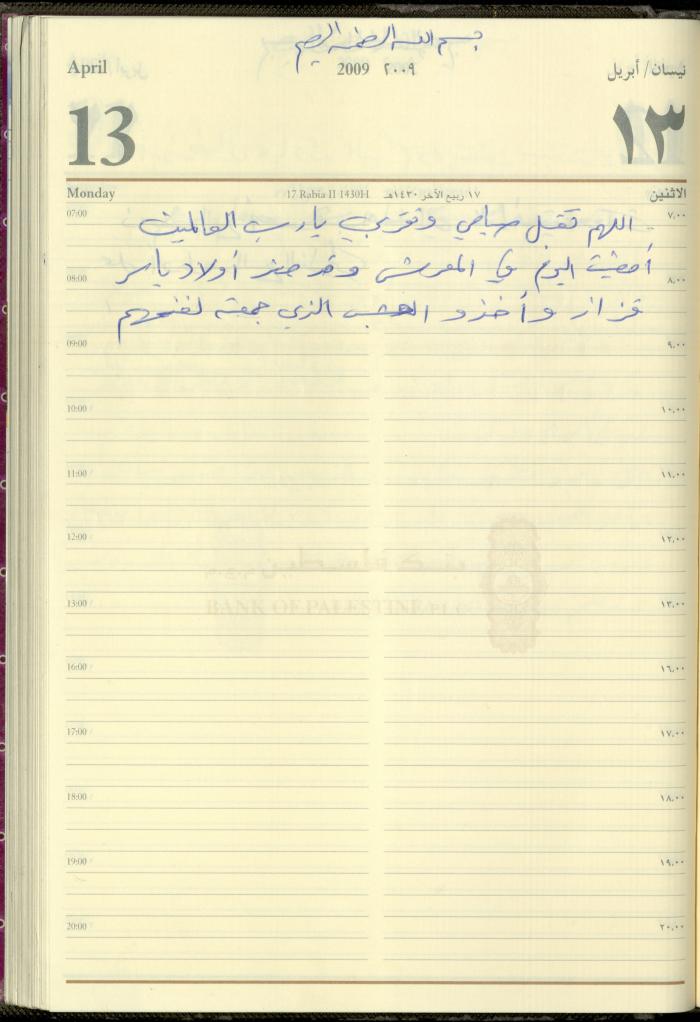 بسم الله الرحمن الرحيم
April 2009 ٢٠٠٩ نيسان/ أبريل
13 ١٣
Monday 17 Rabia II 1430H ١٧ ربيع الآخر ١٤٣٠هـ الاثنين
07:00 ٧,٠٠
اللهم تقبل صيامي وتقربي يارب العالمين
أمضيت اليوم في المعرش وقد حضر أولاد ياسر
08:00 ٨,٠٠
قزاز وأخذو العشب الذي جمعته لغنمهم
09:00 ٩,٠٠
10:00 ١٠,٠٠
11:00 ١١,٠٠
12:00 ١٢,٠٠
BANK OF PALESTINE
13:00 ١٣,٠٠
16:00 ١٦,٠٠
17:00 ١٧,٠٠
18:00 ١٨,٠٠
19:00 ١٩,٠٠
20:00 ٢٠,٠٠